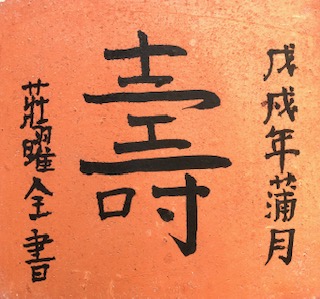 戊戌年蒲月
壽
莊曜全書